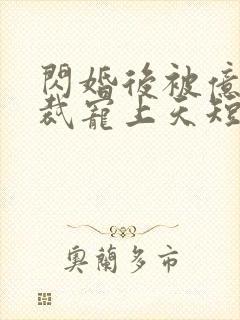 閃婚後被億
裁寵上天短
奧蘭多市